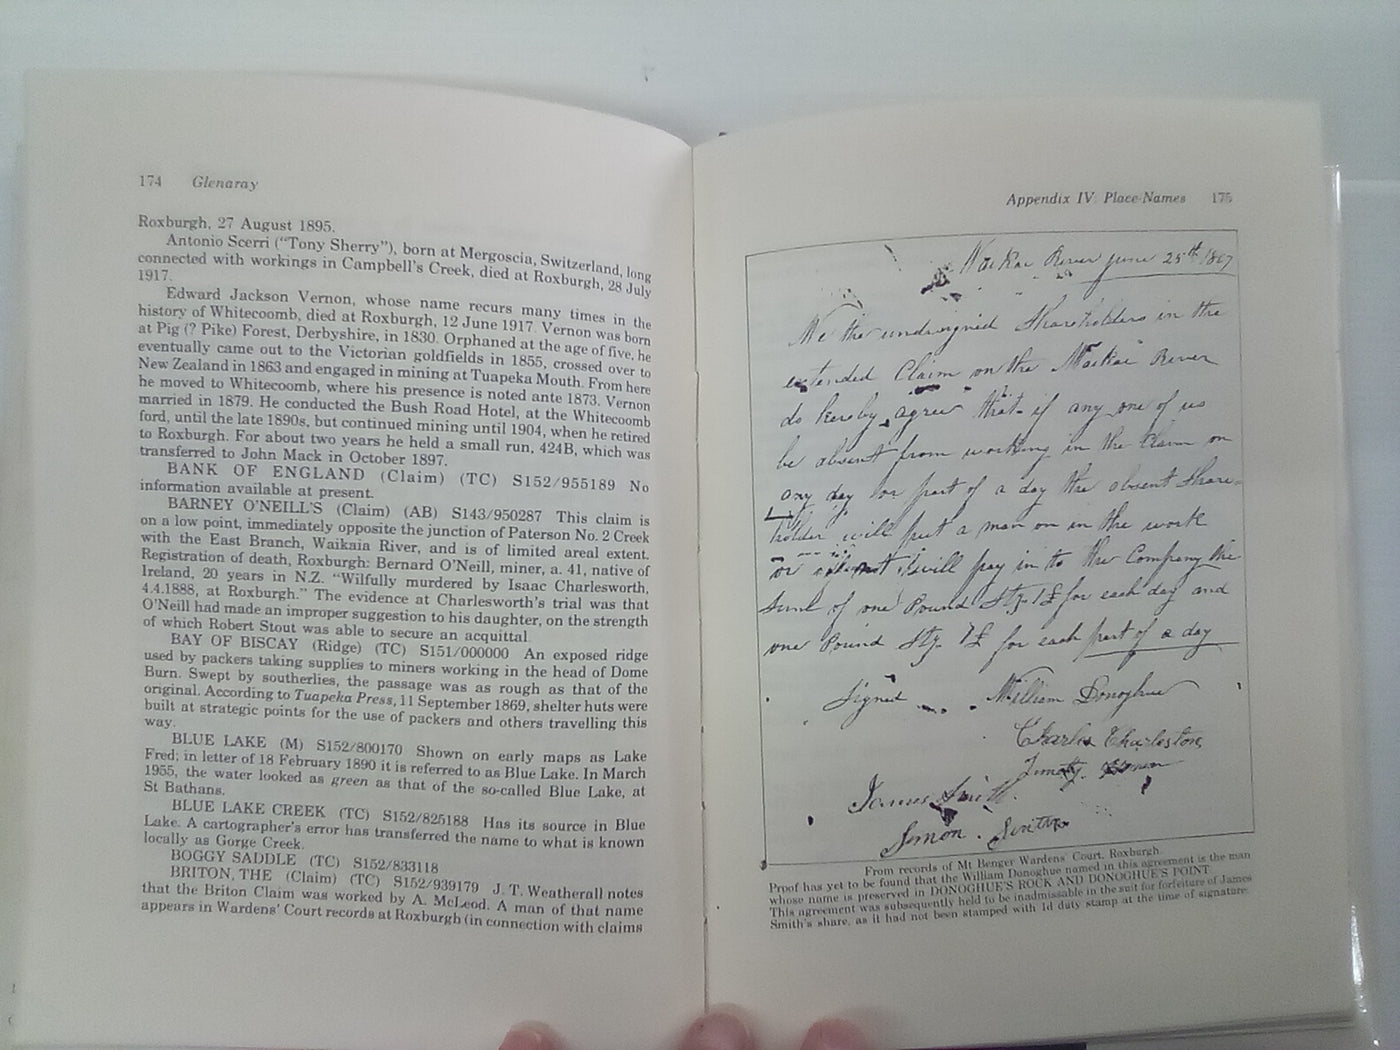 174 Glenaray
Roxburgh, 27 August 1895.
Antonio Scerri ("Tony Sherry"), born at Mergoscia, Switzerland, long
connected with workings in Campbell's Creek, died at Roxburgh, 28 July
1917.
Edward Jackson Vernon, whose name recurs many times in the
history of Whitecoomb, died at Roxburgh, 12 June 1917. Vernon was born
at Pig (? Pike) Forest, Derbyshire, in 1830. Orphaned at the age of five, he
eventually came out to the Victorian goldfields in 1855, crossed over to
New Zealand in 1863 and engaged in mining at Tuapeka Mouth. From here
he moved to Whitecoomb, where his presence is noted ante 1873. Vernon
married in 1879. He conducted the Bush Road Hotel, at the Whitecoomb
ford, until the late 1890s, but continued mining until 1904, when he retired
to Roxburgh. For about two years he held a small run, 424B, which was
transferred to John Mack in October 1897.
BANK OF ENGLAND (Claim) (TC) S152/955189 No
information available at present.
BARNEY O'NEILL'S (Claim) (AB) S143/950287 This claim is
on a low point, immediately opposite the junction of Paterson No. 2 Creek
with the East Branch, Waikaia River, and is of limited areal extent.
Registration of death, Roxburgh: Bernard O'Neill, miner, a. 41, native of
Ireland, 20 years in N.Z. "Wilfully murdered by Isaac Charlesworth,
4.4.1888, at Roxburgh." The evidence at Charlesworth's trial was that
O'Neill had made an improper suggestion to his daughter, on the strength
of which Robert Stout was able to secure an acquittal.
BAY OF BISCAY (Ridge) (TC) S151/000000 An exposed ridge
used by packers taking supplies to miners working in the head of Dome
Burn. Swept by southerlies, the passage was as rough as that of the
original. According to Tuapeka Press, 11 September 1869, shelter huts were
built at strategic points for the use of packers and others travelling this
way.
BLUE LAKE (M) S152/800170 Shown on early maps as Lake
Fred; in letter of 18 February 1890 it is referred to as Blue Lake. In March
1955, the water looked as green as that of the so-called Blue Lake, at
St Bathans.
BLUE LAKE CREEK (TC) S152/825188 Has its source in Blue
Lake. A cartographer's error has transferred the name to what is known
locally as Gorge Creek.
BOGGY SADDLE (TC) S152/833118
BRITON, THE (Claim) (TC) S152/939179 J. T. Weatherall notes
that the Briton Claim was worked by A. McLeod. A man of that name
appears in Wardens' Court records at Roxburgh (in connection with claims
Appendix IV: Place-Names 175
River June 25th 1867
We the undersigned Shareholders in the
extended Claim on the River
do hereby agree that if any one of us
be absent from working in the Claim on
any day or part of a day the absent Share-
holder will put a man on in the work
or will pay in to the Company the
Sum of one Pound Stg. 1£ for each day and
one Pound Stg. 1£ for each part of a day
Signed William Donoghue
Charles Charleston
James Smith
Simon
From records of Mt Benger Wardens' Court, Roxburgh.
Proof has yet to be found that the William Donoghue named in this agreement is the man
whose name is preserved in DONOGHUE'S ROCK AND DONOGHUE'S POINT
This agreement was subsequently held to be inadmissable in the suit for forfeiture of James
Smith's share, as it had not been stamped with 1d duty stamp at the time of signature.